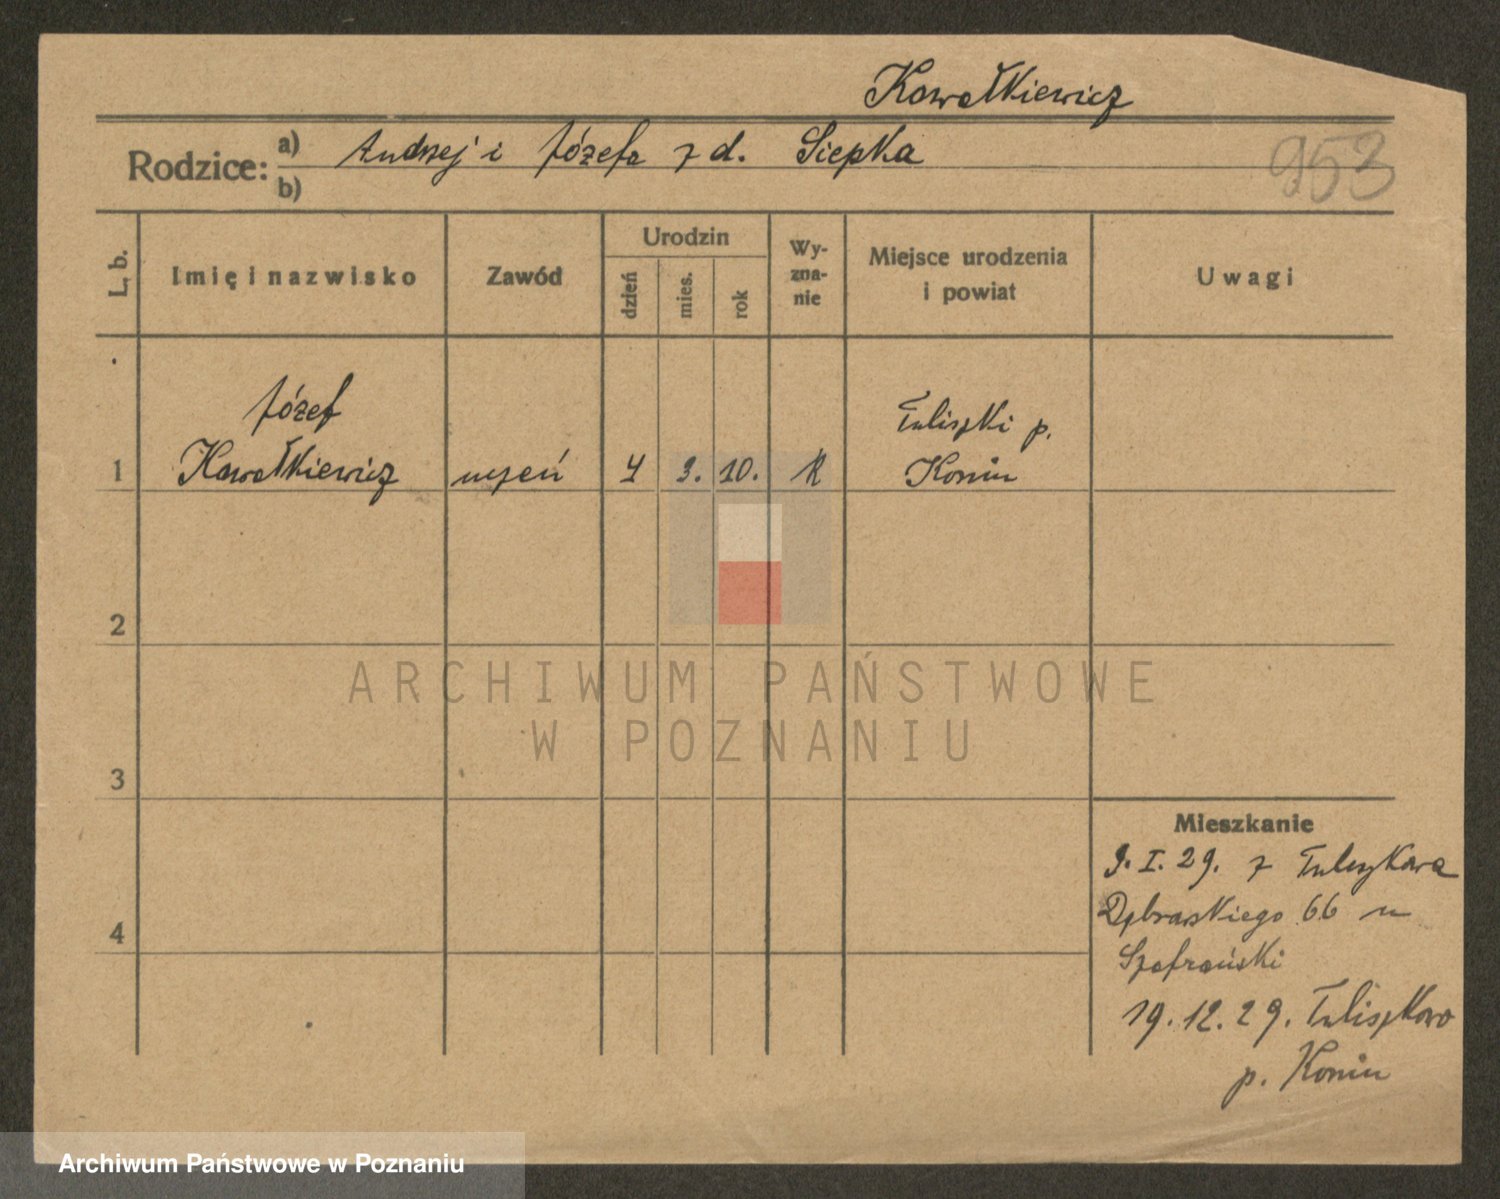 Kowałkiewicz
Rodzice: a) Andrzej i Józefa z d. Siepka
b)
953
L. b.
Imię i nazwisko
Zawód
Urodzin
dzień
mies.
rok
Wy-
zna-
nie
Miejsce urodzenia
i powiat
Uwagi
Józef
Tuliszki p.
1 Kowałkiewicz uczeń 4 3. 10. R Konin
2
ARCHIWUM PAŃSTWOWE
W POZNANIU
3
Mieszkanie
9. I. 29. z Tuliszkowa
4 Dąbrowskiego 66 u
Szafrański
19. 12. 29. Tuliszkowo
p. Konin
Archiwum Państwowe w Poznaniu